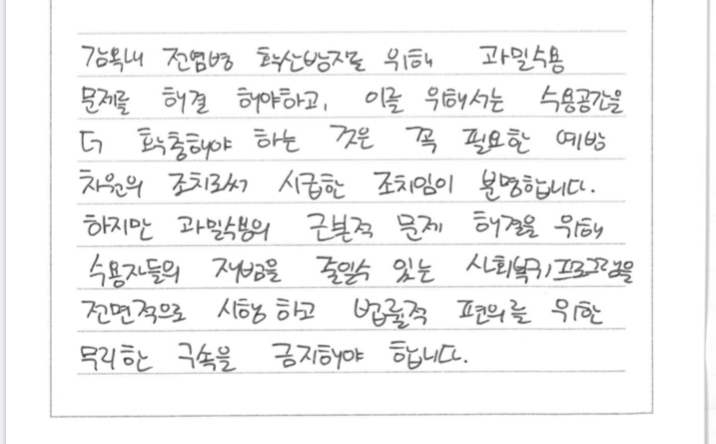 감옥내 전염병 확산방지를 위해 과밀수용
문제를 해결 해야하고, 이를 위해서는 수용공간을
더 확충해야 하는 것은 꼭 필요한 예방
차원의 조치로써 시급한 조치임이 분명합니다.
하지만 과밀수용의 근본적 문제 해결을 위해
수용자들의 재범을 줄일수 있는 사회복귀프로그램을
전면적으로 시행하고 법률적 편의를 위한
무리한 구속을 금지해야 합니다.